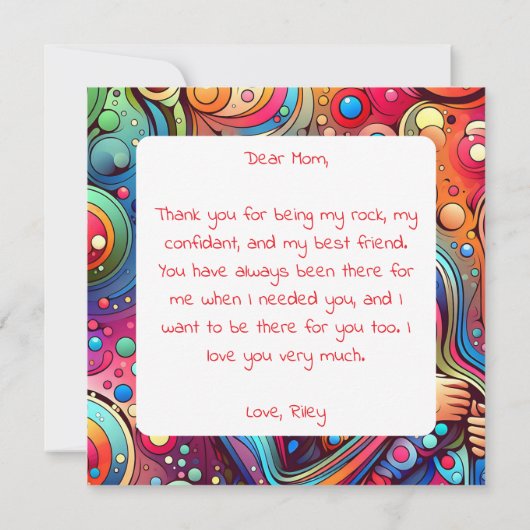 Dear Mom,
Thank you for being my rock, my
confidant, and my best friend.
You have always been there for
me when I needed you, and I
want to be there for you too. I
love you very much.
Love, Riley